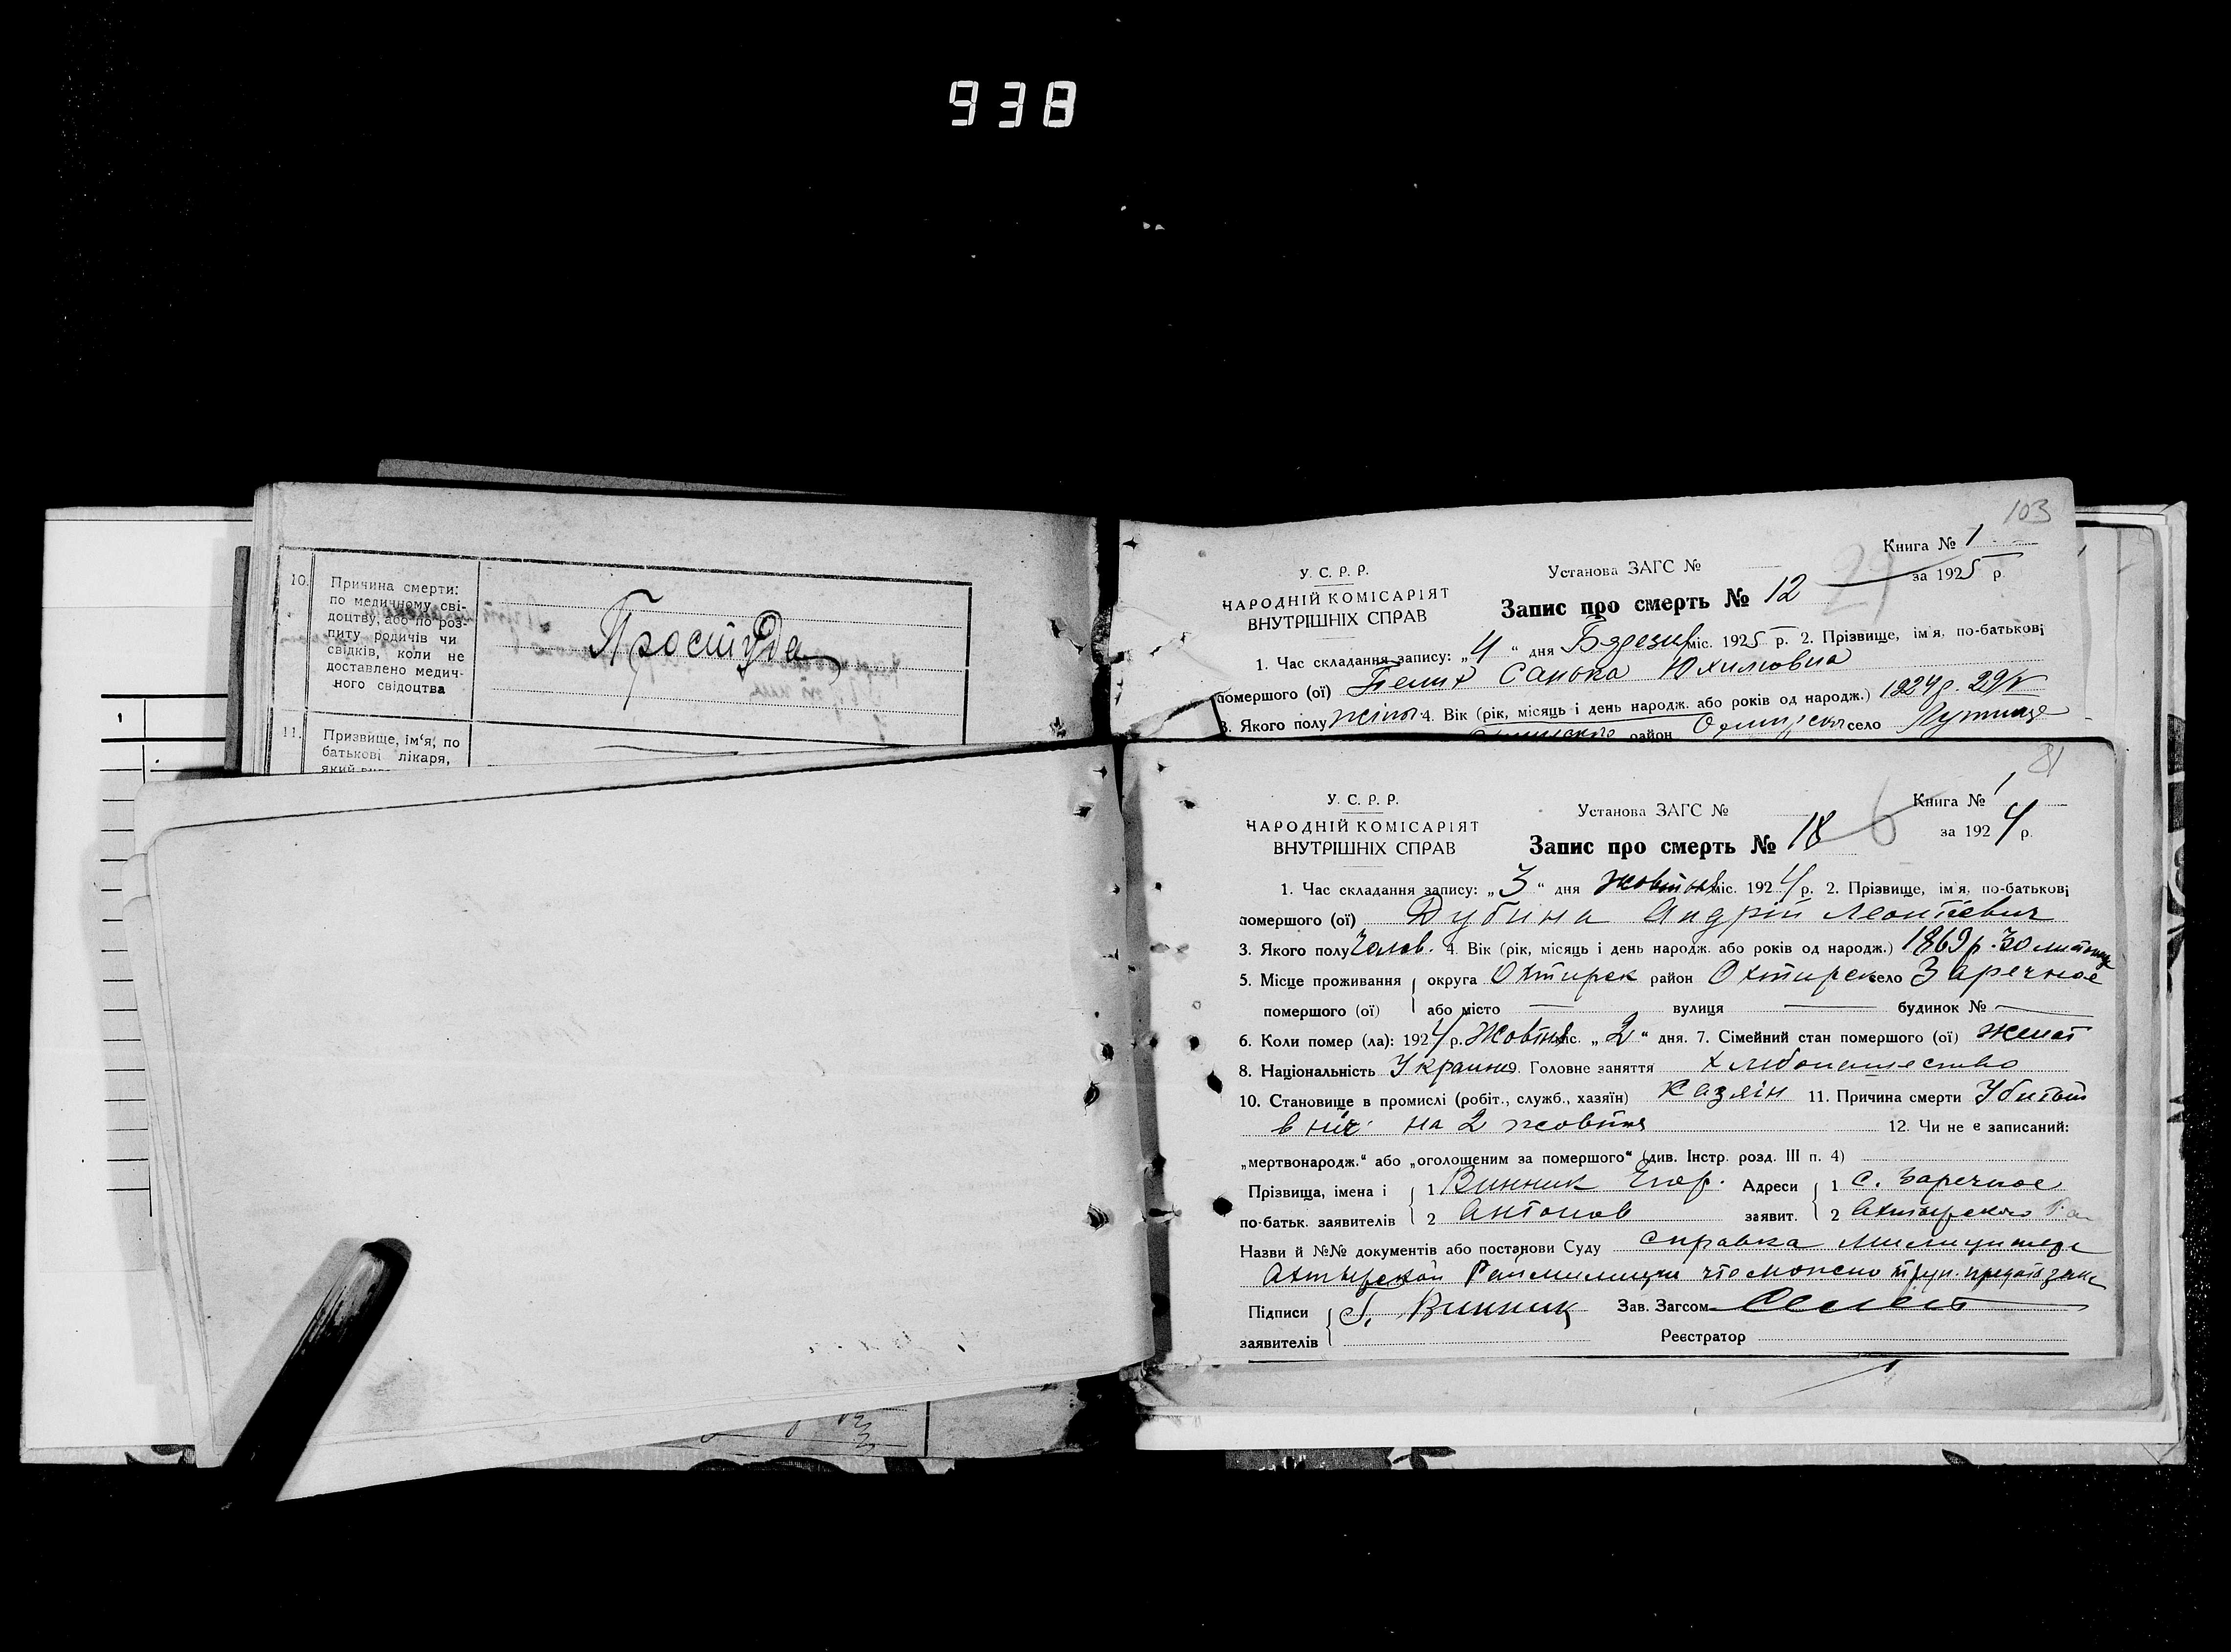 938
10. Причина смерти:
по медичному сві-
доцтву, або по роз-
питу родичів чи
свідків, коли не
доставлено медич-
ного свідоцтва
Простуда
11. Призвище, ім'я, по
батькові лікаря,
103
Книга № 1
У. С. Р. Р.
Установа ЗАГС №
за 1925 р.
НАРОДНІЙ КОМІСАРІЯТ
ВНУТРІШНІХ СПРАВ
Запис про смерть № 12
1. Час складання запису: „4“ дня міс. 1925 р. 2. Прізвище, ім'я, по-батькові
помершого (ої) Санька Юхимовна
3. Якого полу жіноч 4. Вік (рік, місяць і день народж. або років од народж.) 1924 р. 29/V
район село
81
У. С. Р. Р.
Установа ЗАГС №
Книга № 1
НАРОДНІЙ КОМІСАРІЯТ
за 1924 р.
ВНУТРІШНІХ СПРАВ
Запис про смерть № 18
6
1. Час складання запису: „3“ дня жовтня міс. 1924 р. 2. Прізвище, ім'я, по-батькові
помершого (ої) Дубина Андрій Леонтіевич
3. Якого полу чолов. 4. Вік (рік, місяць і день народж. або років од народж.) 1869 р. 30
5. Місце проживання округа Охтирск район Охтирск село Заречное
помершого (ої) або місто вулиця будинок №
6. Коли помер (ла): 1924 р. Жовтня міс. „2“ дня. 7. Сімейний стан помершого (ої) женат
8. Національність 9. Головне заняття хлібопашество
10. Становище в промислі (робіт., служб., хазяїн) хазяін 11. Причина смерти Убитий
в ніч на 2 жовтня 12. Чи не є записаний:
„мертвонародж.“ або „оголошеним за помершого“ (див. Інстр. розд. III п. 4)
Прізвища, імена і 1 Винник Егор. Адреси 1 с. Заречное
по-батьк. заявителів 2 Антонов заявит. 2 Ахтырского Ра
Назви й №№ документів або постанови Суду справка
Ахтырской Раймилиции что можно труп
Підписи Г. Винник Зав. Загсом
заявителів
Реєстратор